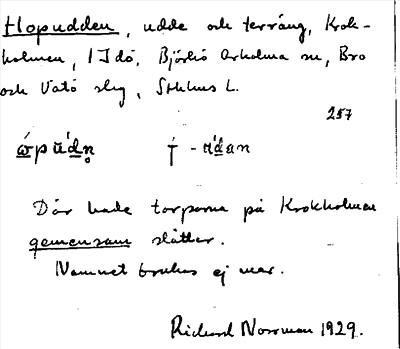 Hopudden, udde och terräng, Krok-
holmen, i Idö, Björkö Arholma sn, Bro
och Vätö slg, Sthlms L.
257
ẃpŭ́dn̥ † -ŭ́dan
Där hade torparna på Krokholmen
gemensam slåtter.
Namnet brukas ej mer.
Richard Norrman 1929.